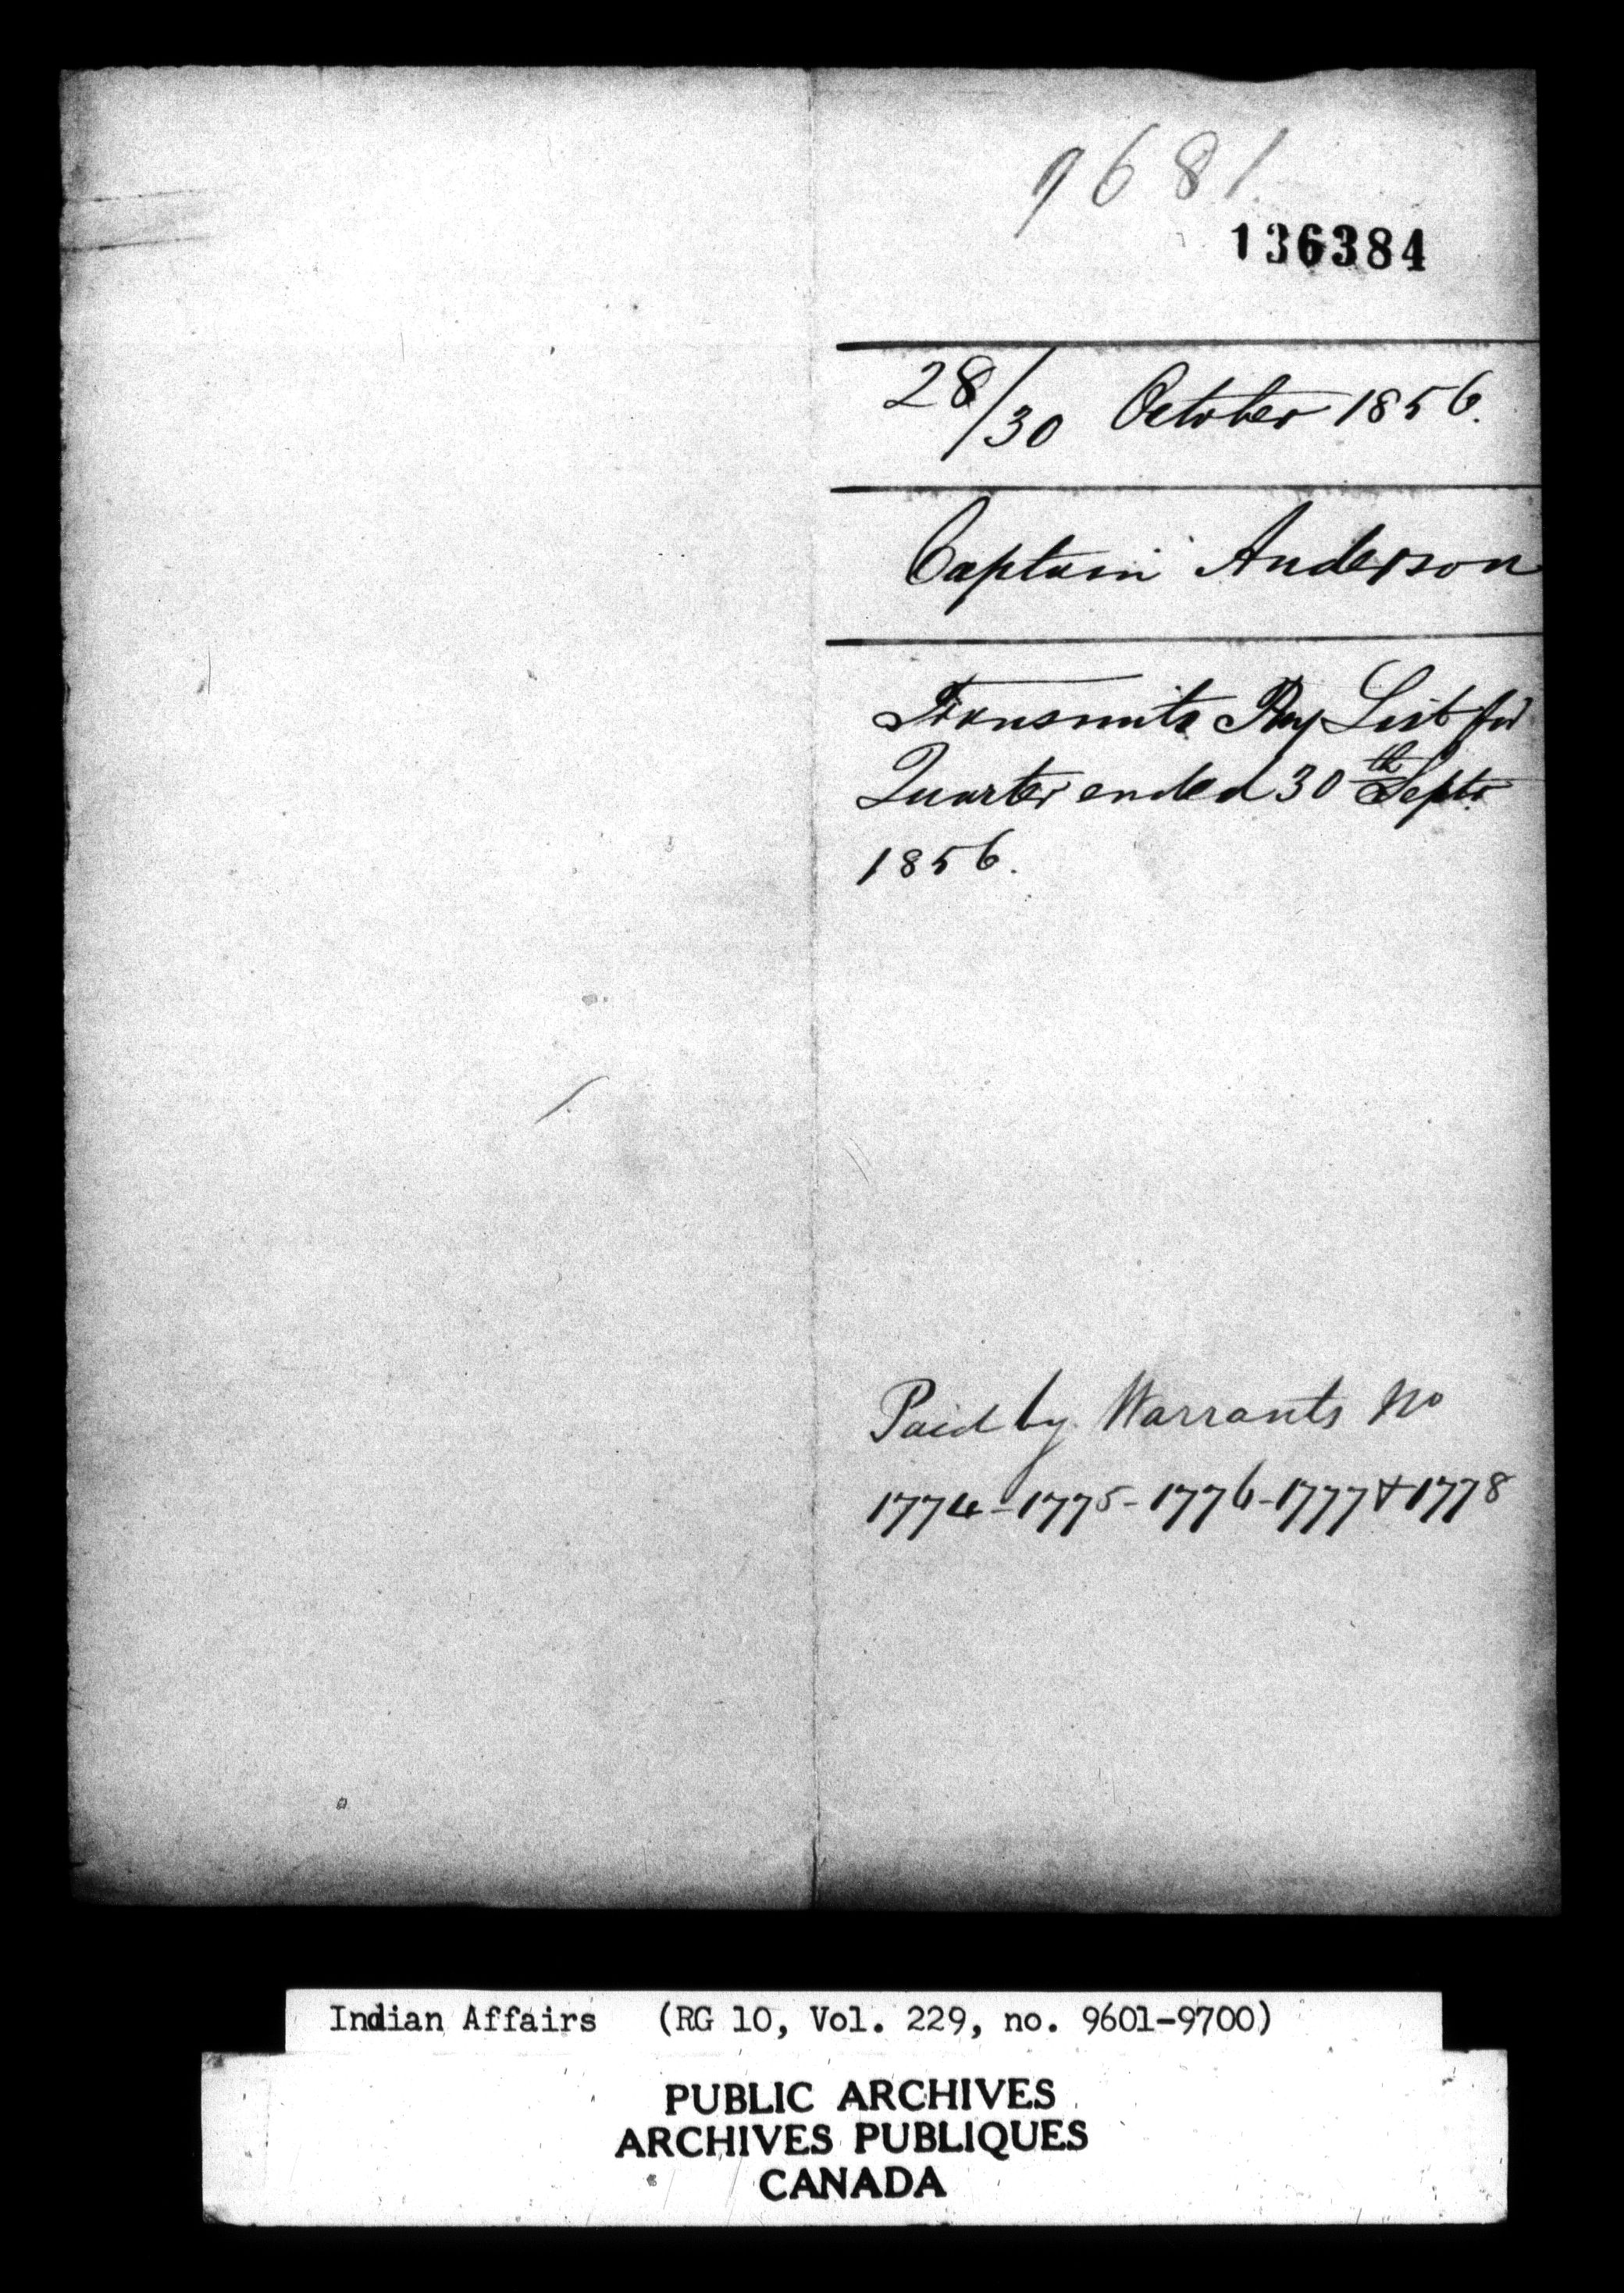 9681
136384
28/30 October 1856.
Captain Anderson
Transmits Pay List for
Quarter ended 30th Septr
1856.
Paid by Warrants No
1774-1775-1776-1777 & 1778
Indian Affairs (RG 10, Vol. 229, no. 9601-9700)
PUBLIC ARCHIVES
ARCHIVES PUBLIQUES
CANADA